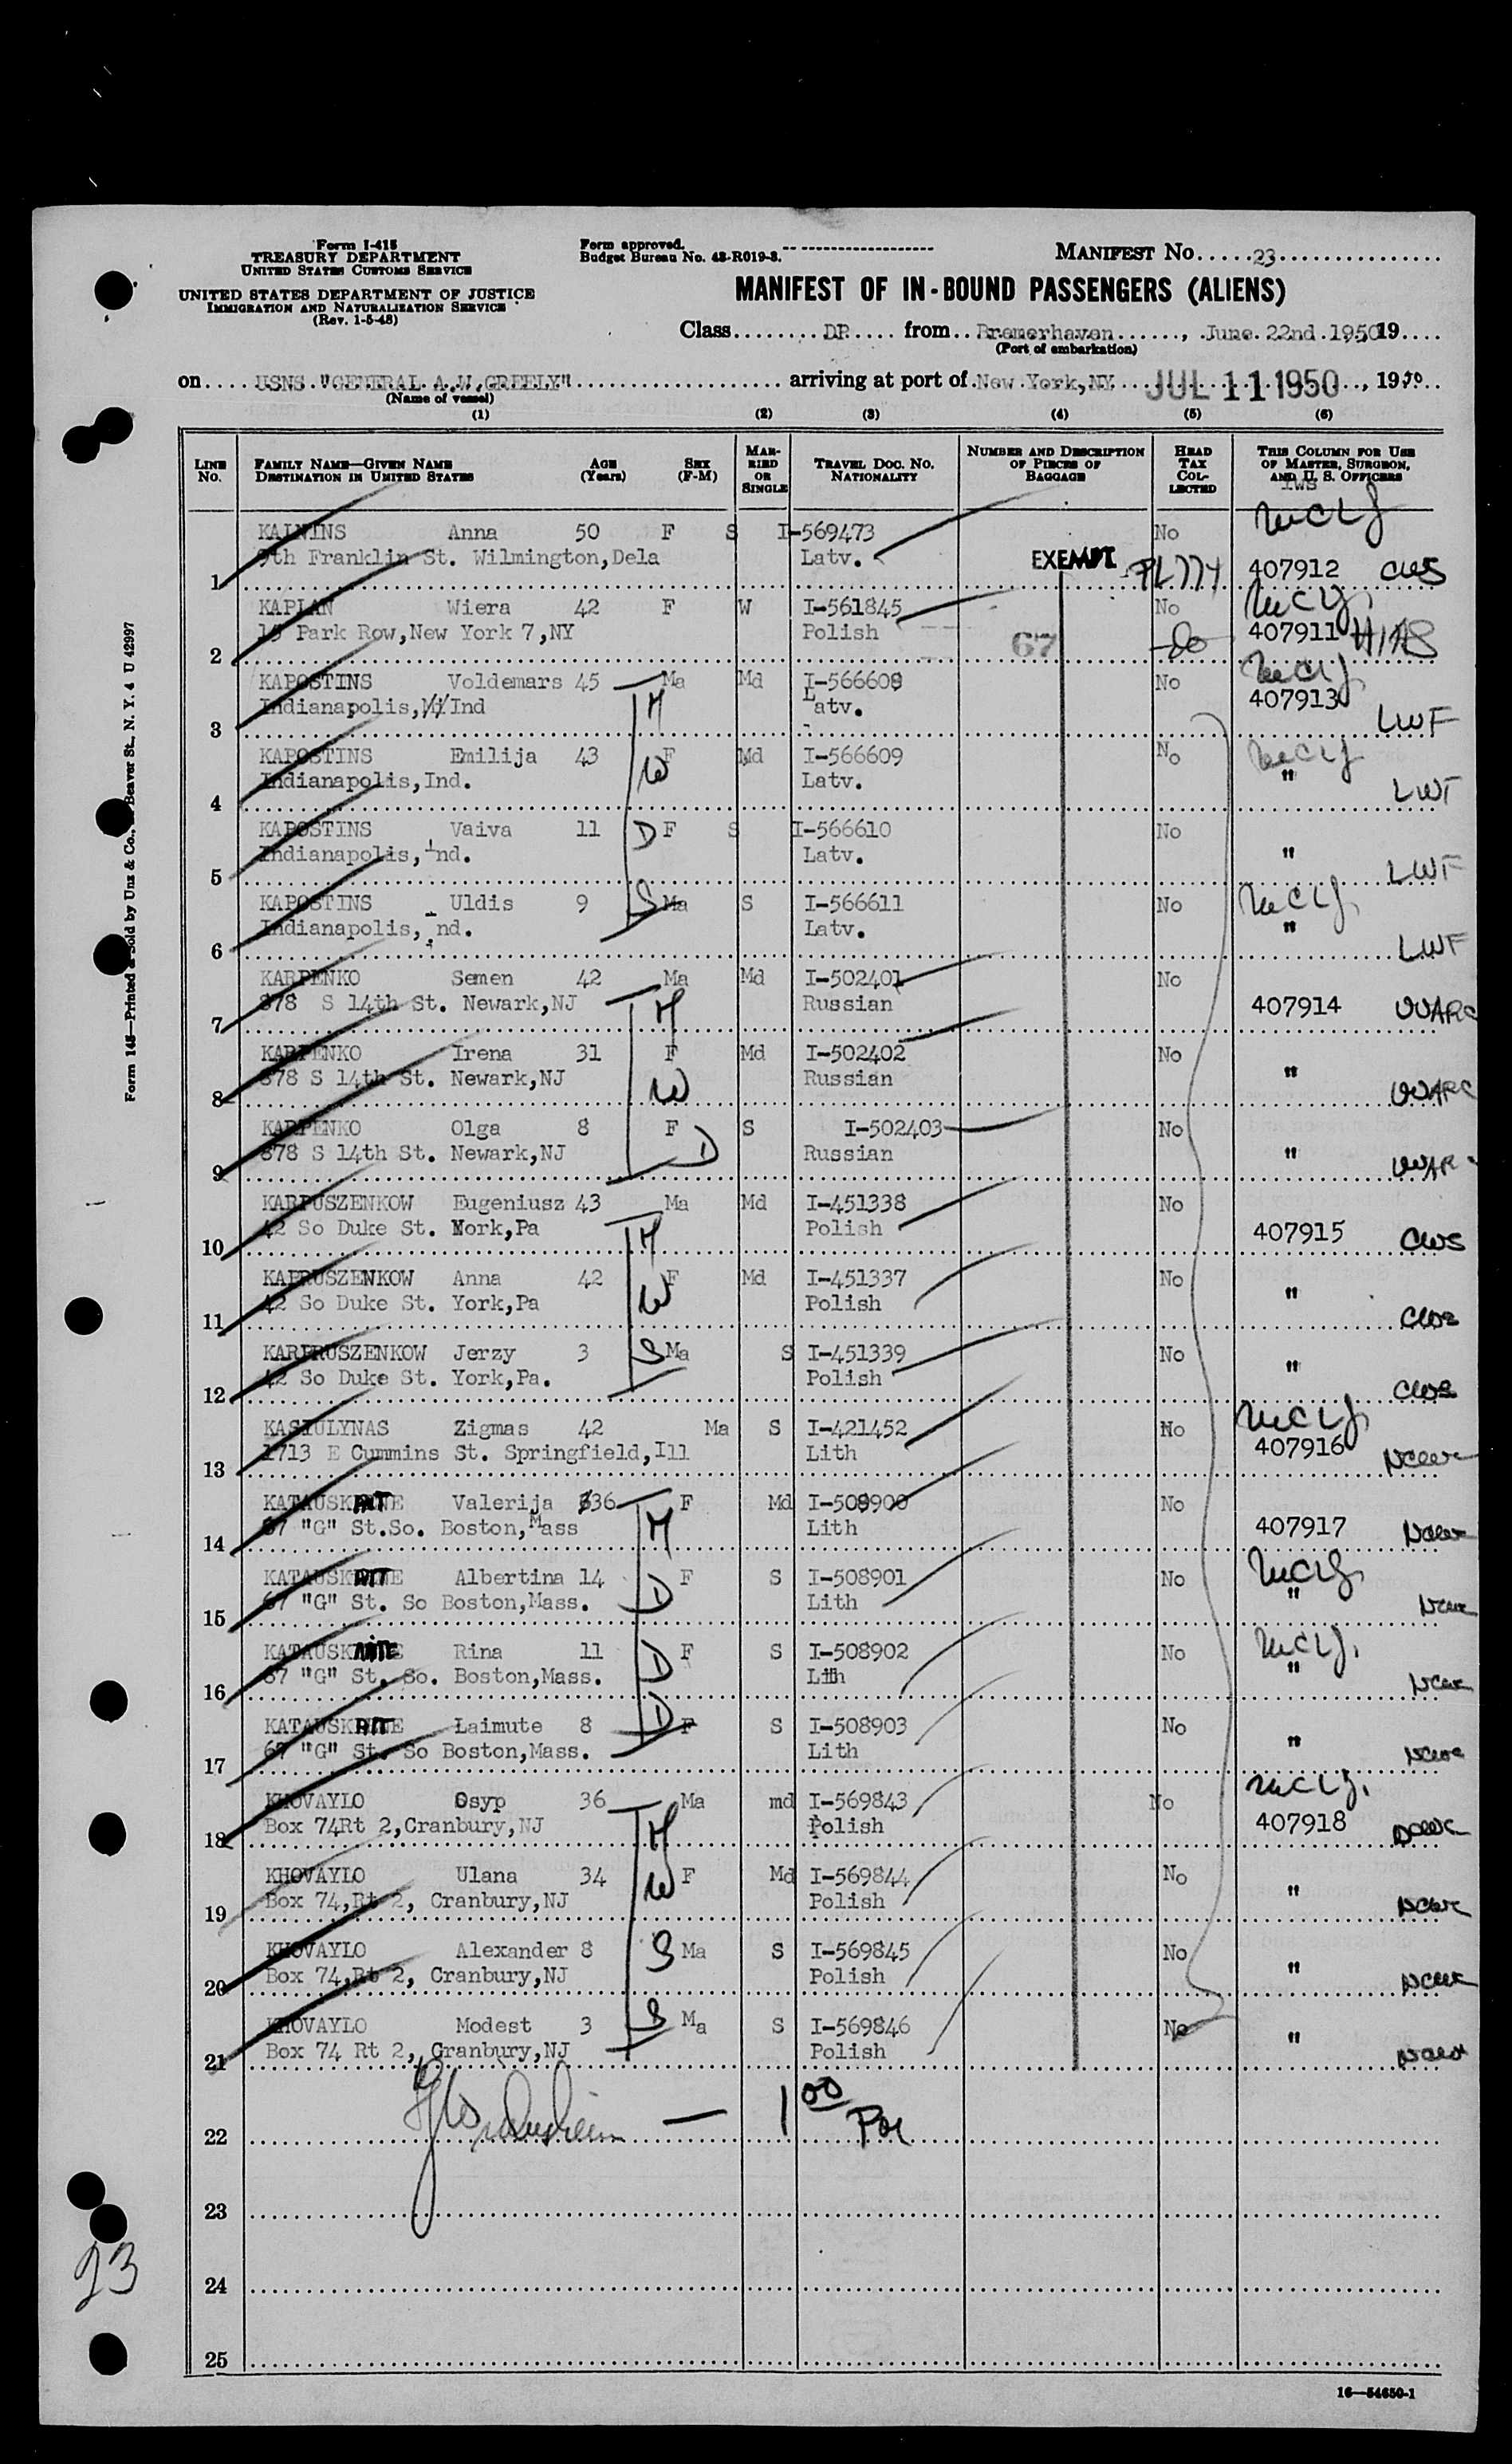 Form I-415
TREASURY DEPARTMENT
UNITED STATES CUSTOMS SERVICE
UNITED STATES DEPARTMENT OF JUSTICE
IMMIGRATION AND NATURALIZATION SERVICE
(Rev. 1-5-48)
Form approved.
Budget Bureau No. 43-R019-3.
MANIFEST No. 23
MANIFEST OF IN-BOUND PASSENGERS (ALIENS)
Class DP from Bremerhaven, June 22nd 1950 19
(Port of embarkation)
on USNS "GENERAL A.W.GREELY" arriving at port of New York,NY JUL 11 1950, 1950
(Name of vessel)
(1) (2) (3) (4) (5) (6)
LINE NO. FAMILY NAME—GIVEN NAME DESTINATION IN UNITED STATES AGE (Years) SEX (F-M) MARRIED OR SINGLE TRAVEL DOC. NO. NATIONALITY NUMBER AND DESCRIPTION OF PIECES OF BAGGAGE HEAD TAX COLLECTED THIS COLUMN FOR USE OF MASTER, SURGEON, AND U. S. OFFICERS
IWS
KALNINS Anna 50 F S I-569473 No
1 9th Franklin St. Wilmington,Dela Latv. EXEMPT PL774 407912 CWS
KAPLAN Wiera 42 F W I-561845 No
2 15 Park Row,New York 7,NY Polish 67 do 407911 HIAS
KAPOSTINS Voldemars 45 Ma Md I-566608 No
3 Indianapolis, Ind H Latv. 407913 LWF
KAPOSTINS Emilija 43 F Md I-566609 No
4 Indianapolis,Ind. W Latv. " LWF
KAPOSTINS Vaiva 11 D F S I-566610 No
5 Indianapolis,Ind. Latv. " LWF
KAPOSTINS Uldis 9 S Ma S I-566611 No
6 Indianapolis, nd. Latv. " LWF
KARPENKO Semen 42 Ma Md I-502401 No
7 878 S 14th St. Newark,NJ H Russian 407914 UUARC
KARPENKO Irena 31 F Md I-502402 No
8 878 S 14th St. Newark,NJ W Russian " UUARC
KARPENKO Olga 8 F S I-502403 No
9 878 S 14th St. Newark,NJ D Russian " UUARC
KARPUSZENKOW Eugeniusz 43 Ma Md I-451338 No
10 42 So Duke St. York,Pa H Polish 407915 CWS
KAPRUSZENKOW Anna 42 F Md I-451337 No
11 42 So Duke St. York,Pa W Polish " CWS
KARPRUSZENKOW Jerzy 3 S Ma S I-451339 No
12 42 So Duke St. York,Pa. Polish " CWS
KASIULYNAS Zigmas 42 Ma S I-421452 No
13 1713 E Cummins St. Springfield,Ill Lith 407916 NCWC
Valerija 36 F Md I-508900 No
14 67 "G" St.So. Boston,Mass H Lith 407917 NCWC
Albertina 14 F S I-508901 No
15 67 "G" St. So Boston,Mass. D Lith " NCWC
Rina 11 F S I-508902 No
16 67 "G" St. So. Boston,Mass. D Lith " NCWC
Laimute 8 D F S I-508903 No
17 67 "G" St. So Boston,Mass. Lith " NCWC
KHOVAYLO Osyp 36 Ma md I-569843 No
18 Box 74Rt 2,Cranbury,NJ H Polish 407918 NCWC
KHOVAYLO Ulana 34 F Md I-569844 No
19 Box 74,Rt 2, Cranbury,NJ W Polish " NCWC
KHOVAYLO Alexander 8 S Ma S I-569845 No
20 Box 74,Rt 2, Cranbury,NJ Polish " NCWC
KHOVAYLO Modest 3 S Ma S I-569846 No
21 Box 74 Rt 2, Cranbury,NJ Polish " NCWC
22 — 1 00
23
24
25
16—54650-1
23